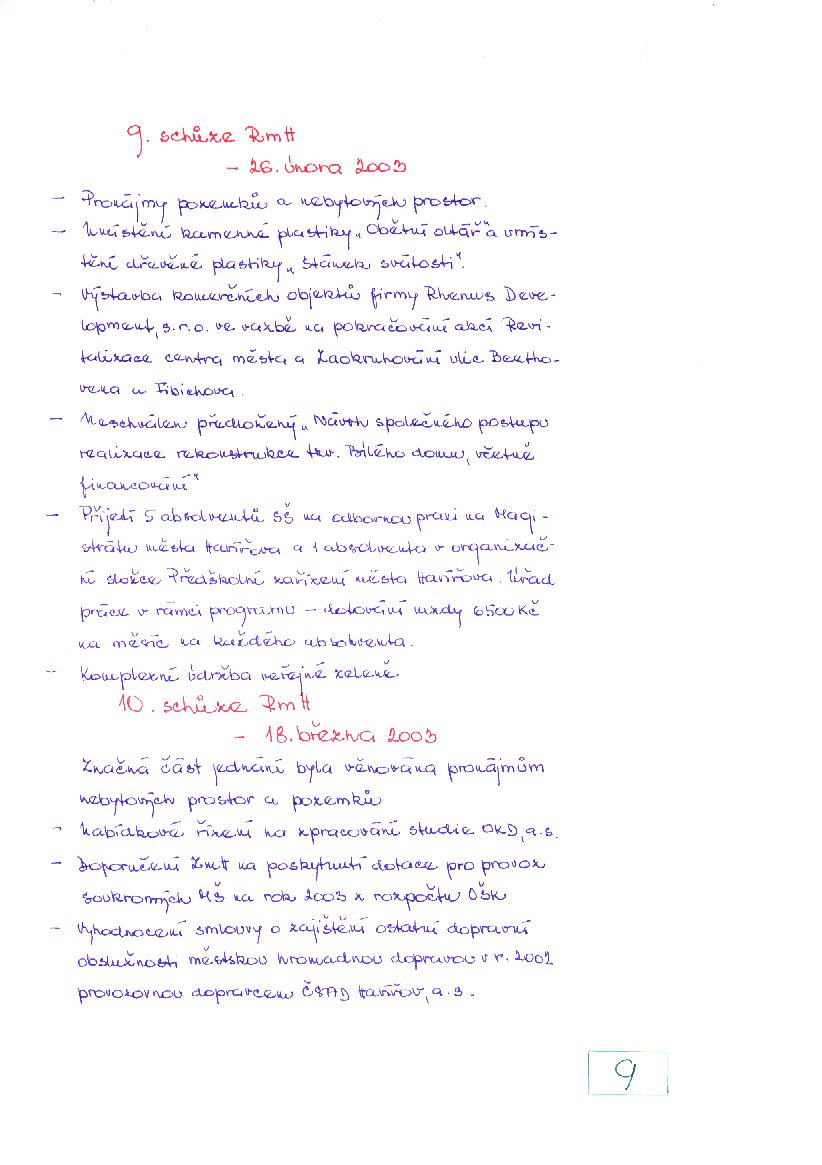 9. schůze RmH
- 26. února 2003
- Pronájmy pozemků a nebytových prostor.
- Umístění kamenné plastiky „Obětní oltář" a umís-
tění dřevěné plastiky „Stánek svátosti".
- Výstavba komerčních objektů firmy Rhenus Deve-
lopment, s.r.o. ve vazbě na pokračování akcí Revi-
talizace centra města a Zaokruhování ulic Beetho-
vena a Fibichova.
- Neschválen předložený „Návrh společného postupu
realizace rekonstrukce tzv. Bílého domu, včetně
financování"
- Přijetí 5 absolventů SŠ na odbornou praxi na Magi-
strátu města Havířova a 1 absolventa v organizač-
ní složce Předškolní zařízení města Havířova. Úřad
práce v rámci programu - dotování mzdy 6500 Kč
na měsíc na každého absolventa.
- Komplexní údržba veřejné zeleně.
10. schůze RmH
- 18. března 2003
Značná část jednání byla věnována pronájmům
nebytových prostor a pozemků
- Nabídkové řízení na zpracování studie OKD, a.s.
- Doporučení ZmH na poskytnutí dotace pro provoz
soukromých MŠ na rok 2003 z rozpočtu OŠK
- Vyhodnocení smlouvy o zajištění ostatní dopravní
obslužnosti městskou hromadnou dopravou v r. 2002
provozovnou dopravcem ČSAD Havířov, a.s.
9